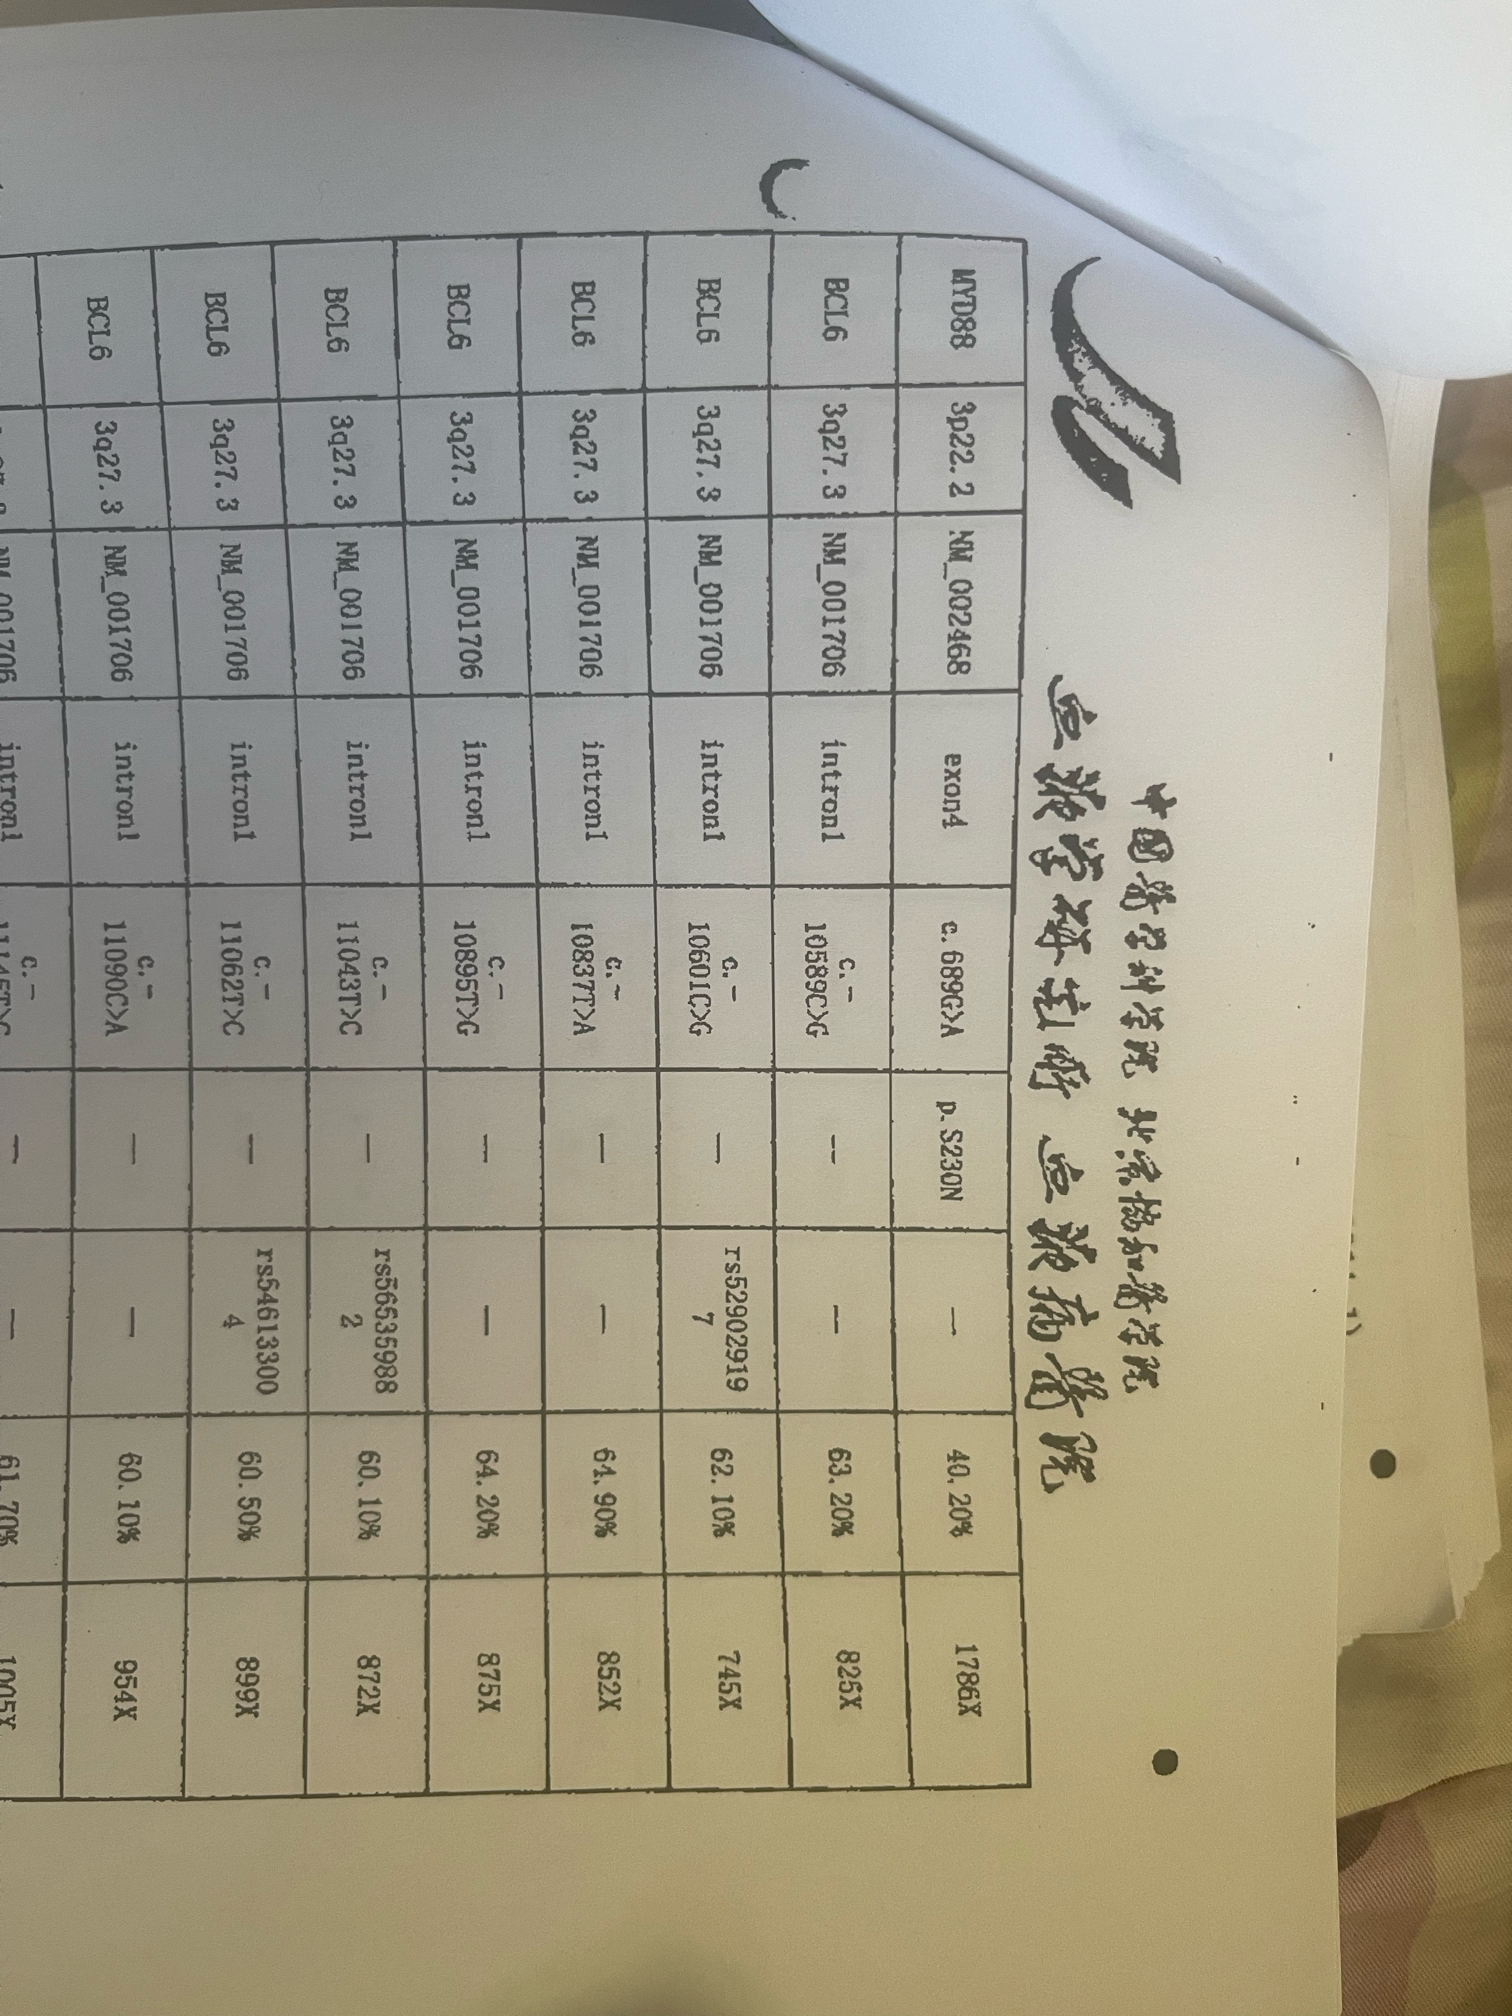 中国医学科学院 北京协和医学院
血液学研究所 血液病医院
MYD88 3p22.2 NM_002468 exon4 c.689G>A p.S230N — 40.20% 1786X
BCL6 3q27.3 NM_001706 intron1 c.-10589C>G — — 63.20% 825X
BCL6 3q27.3 NM_001706 intron1 c.-10601C>G — rs529029197 62.10% 745X
BCL6 3q27.3 NM_001706 intron1 c.-10837T>A — — 64.90% 852X
BCL6 3q27.3 NM_001706 intron1 c.-10895T>G — — 64.20% 875X
BCL6 3q27.3 NM_001706 intron1 c.-11043T>C — rs565359882 60.10% 872X
BCL6 3q27.3 NM_001706 intron1 c.-11062T>C — rs546133004 60.50% 899X
BCL6 3q27.3 NM_001706 intron1 c.-11090C>A — — 60.10% 954X
NM_001706 intron1 c.- — — 61.70% 1005X